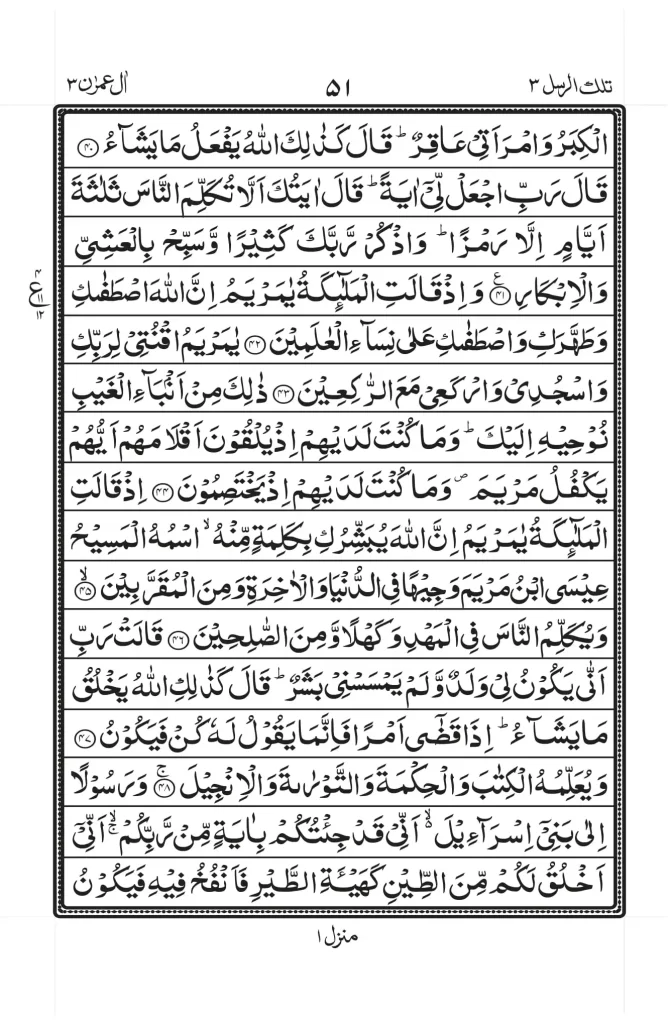 تلك الرسل ٣ ٥١ اٰل عمرٰن ٣
الْكِبَرُ وَامْرَاَتِىْ عَاقِرٌ ؕ قَالَ كَذٰلِكَ اللّٰهُ يَفْعَلُ مَا يَشَآءُ ﴿۴۰﴾
قَالَ رَبِّ اجْعَلْ لِّىْۤ اٰيَةً ؕ قَالَ اٰيَتُكَ اَلَّا تُكَلِّمَ النَّاسَ ثَلٰثَةَ
اَيَّامٍ اِلَّا رَمْزًا ؕ وَاذْكُرْ رَّبَّكَ كَثِيْرًا وَّسَبِّحْ بِالْعَشِىِّ
وَالْاِبْكَارِ ﴿۴۱﴾ ع وَاِذْ قَالَتِ الْمَلٰٓئِكَةُ يٰمَرْيَمُ اِنَّ اللّٰهَ اصْطَفٰىكِ
۴ ع ۱۱ ۱۲
وَطَهَّرَكِ وَاصْطَفٰىكِ عَلٰى نِسَآءِ الْعٰلَمِيْنَ ﴿۴۲﴾ يٰمَرْيَمُ اقْنُتِىْ لِرَبِّكِ
وَاسْجُدِىْ وَارْكَعِىْ مَعَ الرّٰكِعِيْنَ ﴿۴۳﴾ ذٰلِكَ مِنْ اَنْۢبَآءِ الْغَيْبِ
نُوْحِيْهِ اِلَيْكَ ؕ وَمَا كُنْتَ لَدَيْهِمْ اِذْ يُلْقُوْنَ اَقْلَامَهُمْ اَيُّهُمْ
يَكْفُلُ مَرْيَمَ ۪ وَمَا كُنْتَ لَدَيْهِمْ اِذْ يَخْتَصِمُوْنَ ﴿۴۴﴾ اِذْ قَالَتِ
الْمَلٰٓئِكَةُ يٰمَرْيَمُ اِنَّ اللّٰهَ يُبَشِّرُكِ بِكَلِمَةٍ مِّنْهُ ۙ اسْمُهُ الْمَسِيْحُ
عِيْسَى ابْنُ مَرْيَمَ وَجِيْهًا فِى الدُّنْيَا وَالْاٰخِرَةِ وَمِنَ الْمُقَرَّبِيْنَ ۙ ﴿۴۵﴾
وَيُكَلِّمُ النَّاسَ فِى الْمَهْدِ وَكَهْلًا وَّمِنَ الصّٰلِحِيْنَ ﴿۴۶﴾ قَالَتْ رَبِّ
اَنّٰى يَكُوْنُ لِىْ وَلَدٌ وَّلَمْ يَمْسَسْنِىْ بَشَرٌ ؕ قَالَ كَذٰلِكِ اللّٰهُ يَخْلُقُ
مَا يَشَآءُ ؕ اِذَا قَضٰٓى اَمْرًا فَاِنَّمَا يَقُوْلُ لَهٗ كُنْ فَيَكُوْنُ ﴿۴۷﴾
وَيُعَلِّمُهُ الْكِتٰبَ وَالْحِكْمَةَ وَالتَّوْرٰىةَ وَالْاِنْجِيْلَ ۚ ﴿۴۸﴾ وَرَسُوْلًا
اِلٰى بَنِىْۤ اِسْرَآءِيْلَ ۙ اَنِّىْ قَدْ جِئْتُكُمْ بِاٰيَةٍ مِّنْ رَّبِّكُمْ ۙۚ اَنِّىْۤ
اَخْلُقُ لَكُمْ مِّنَ الطِّيْنِ كَهَيْـَٔةِ الطَّيْرِ فَاَنْفُخُ فِيْهِ فَيَكُوْنُ
منزل ۱